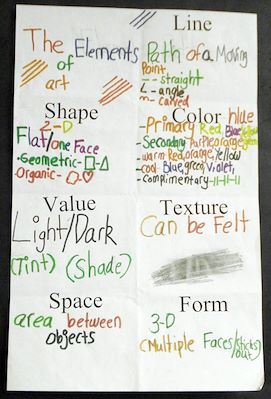 The Elements
of
art
Line
Path of a Moving
Point
-- straight
L - angle
m - curved
Shape
2-D
Flat/one Face
-Geometric-
Organic-
Color hue
-Primary Red, Blue, Yellow
-Secondary Purple, orange, green
-warm Red, orange, Yellow
-cool Blue, green, Violet,
-Complimentary-
Value
Light/Dark
(Tint) (Shade)
Texture
Can be Felt
Space
area between
objects
Form
3-D
(Multiple Faces/sticks
out)